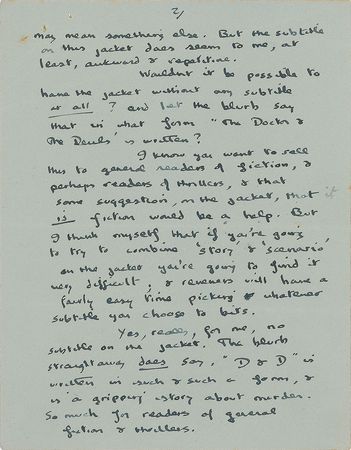 2/
may mean something else. But the subtitle
on this jacket does seem to me, at
least, awkward & repetitive.
Wouldn't it be possible to
have the jacket without any subtitle
at all? and let the blurb say
that in what form "The Doctor &
The Devils" is written?
I know you want to sell
this to general readers of fiction, &
perhaps readers of thrillers, & that
some suggestion, on the jacket, that it
is fiction would be a help. But
I think myself that if you're going
to try to combine 'story' & 'scenario'
on the jacket you're going to find it
very difficult, & reviewers will have a
fairly easy time picking whatever
subtitle you choose to bits.
Yes, really, for me, no
subtitle on the jacket. The blurb
straightaway does say, "D & D" is
written in such & such a form, &
is a gripping story about murder.
So much for readers of general
fiction & thrillers.